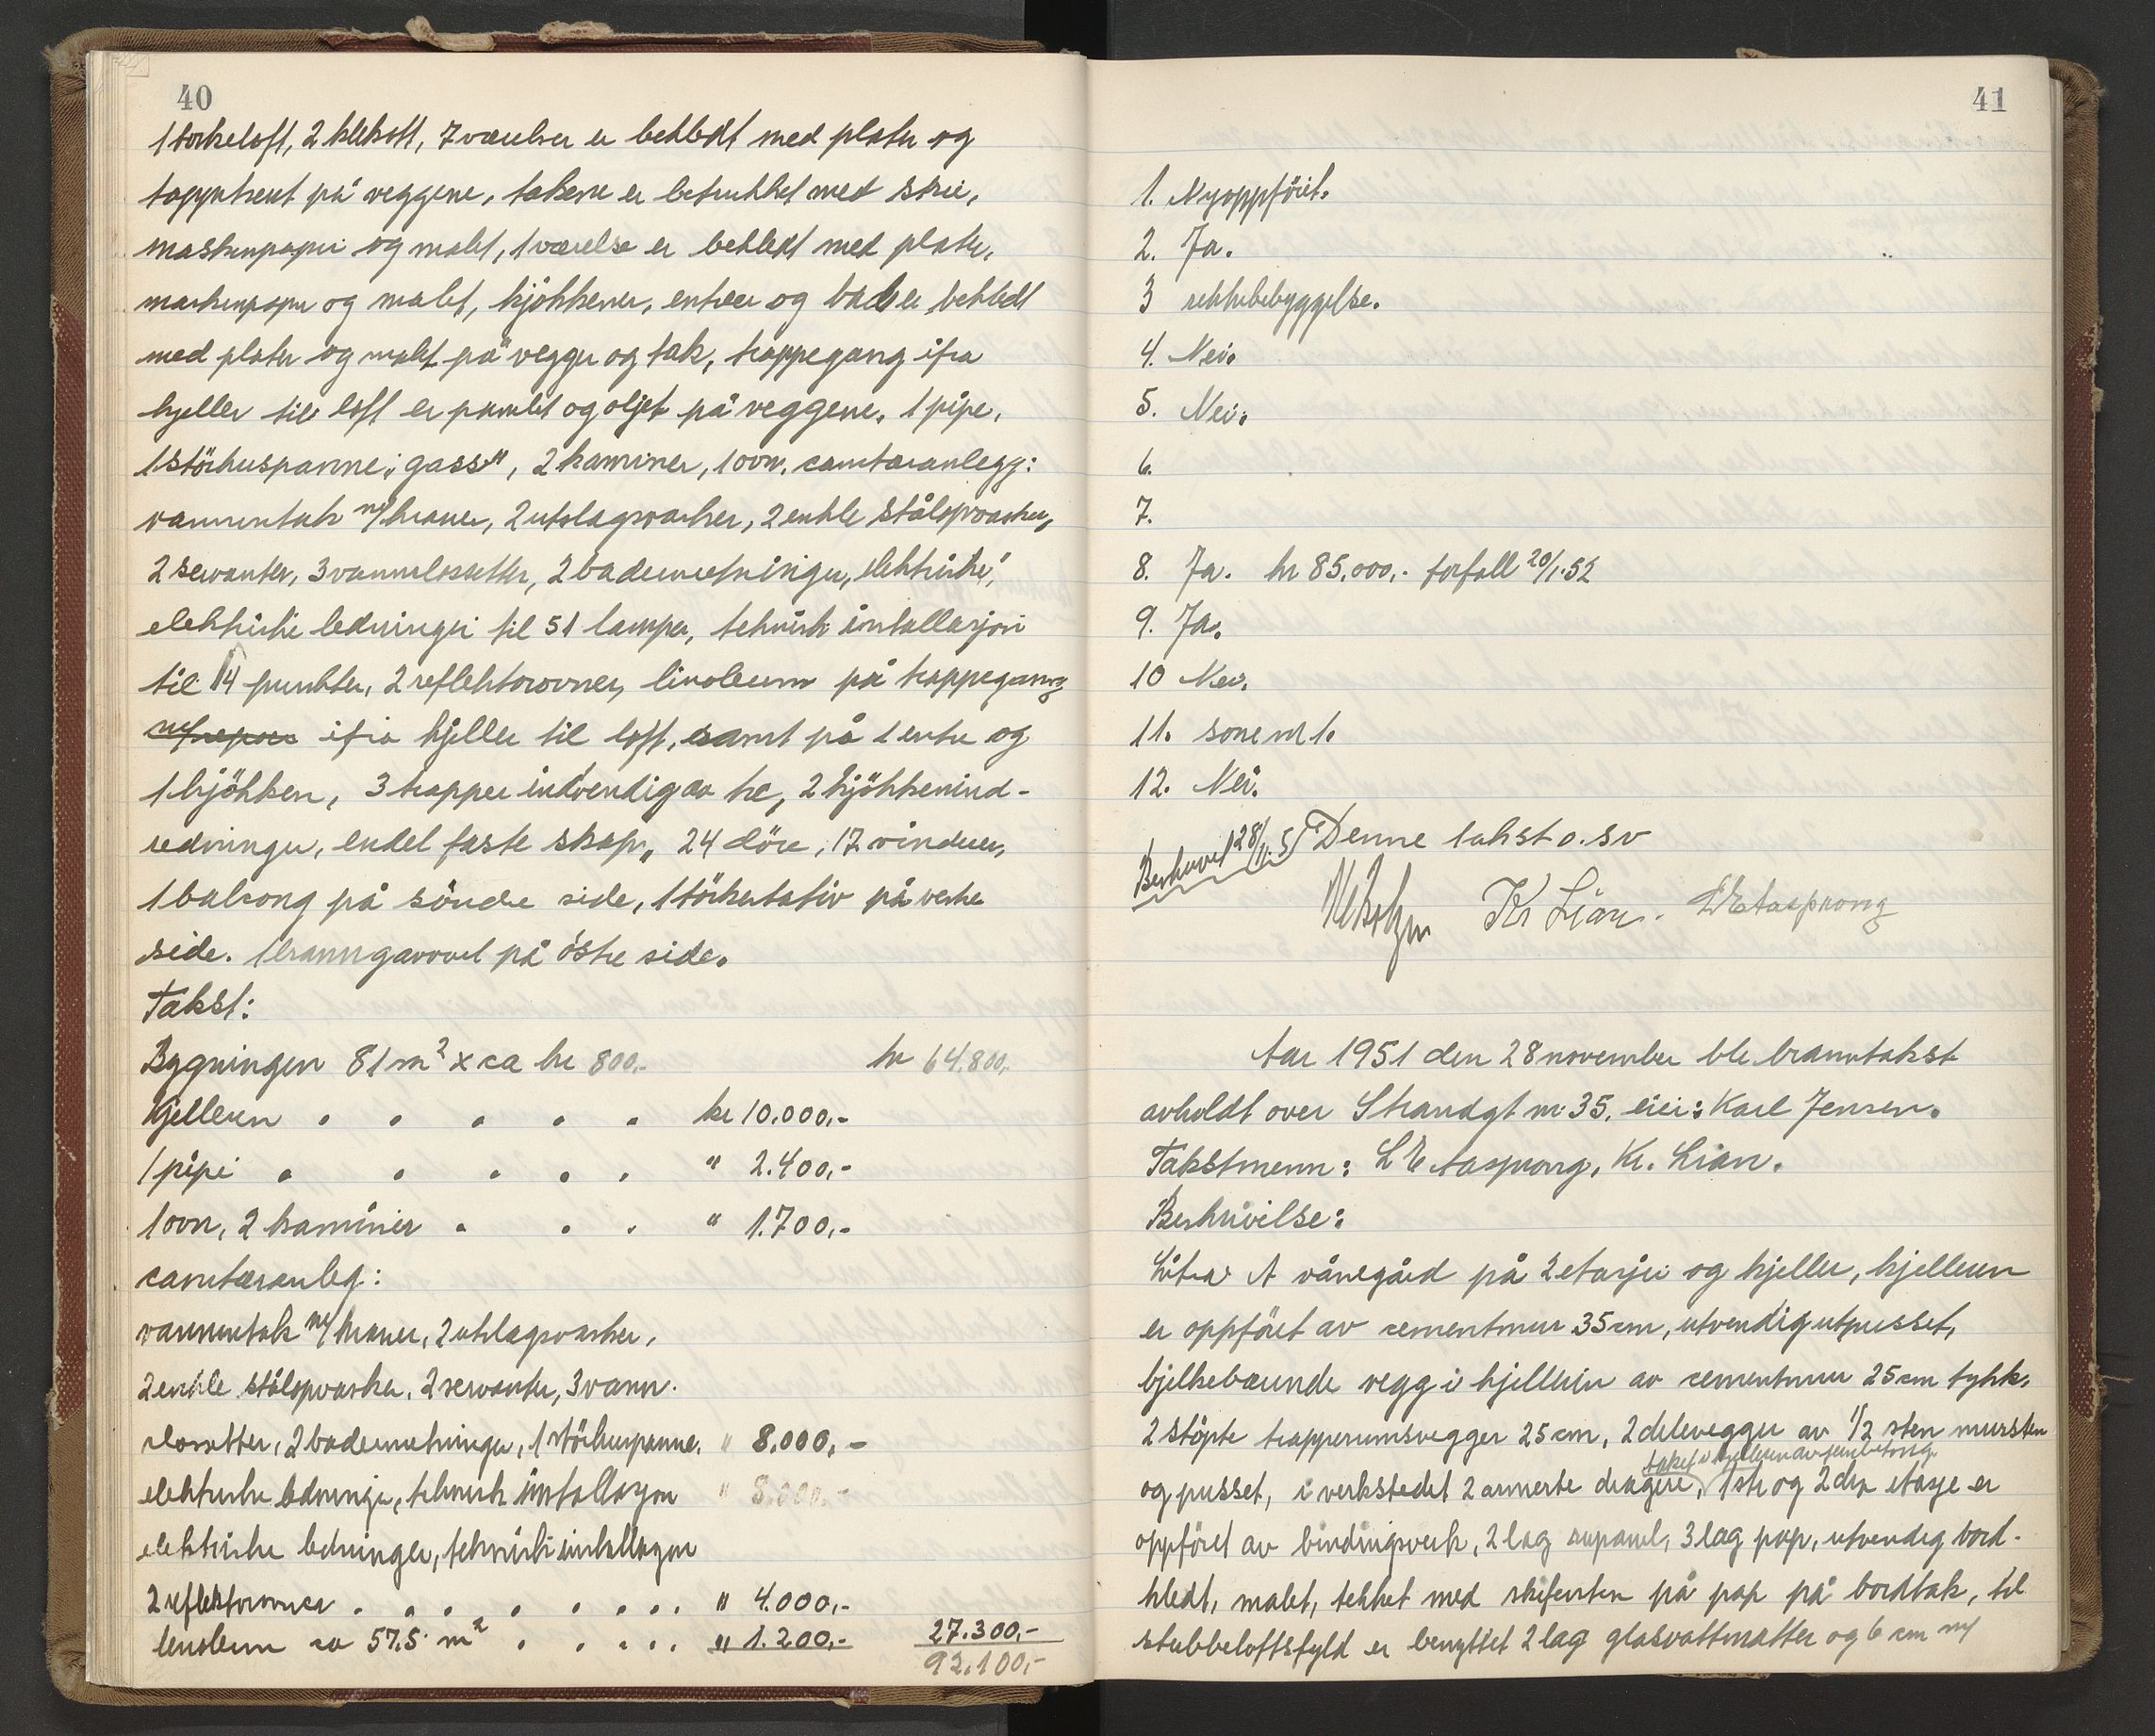 40
1 törkeloft, 2 klekott, 7 værelser er bekledt med plater og
tappetsert på veggene, takene er betrukket med strie,
maskinpapir og malt, 1 værelse er bekledt med plater,
maskinpapir og malet, kjökkener, entreer og bad er bekledt
med plater og malet på vegger og tak, trappegang ifra
kjeller til loft er panelet og oljet på veggene. 1 pipe,
1 störhuspanne, "gass", 2 kaminer, 1 ovn. sanitæranlegg:
vanninntak m/ kraner, 2 utslagsvasker, 2 enkle stålopvasker,
2 servanter, 3 vannklosetter, 2 badeinnretninger, elektriske,
elektriske ledninger til 51 lamper, teknisk installasjon
til 14 punkter, 2 reflektorovner, linoleum på trappegang
ifra kjeller til loft, samt på 1 entre og
1 kjökken, 3 trapper indvendig av tre, 2 kjökkenind-
redninger, endel faste skap, 24 döre, 17 vinduer,
1 balkong på söndre side, 1 törkestativ på vestre
side. 1 branngavvel på östre side.
Takst:
Bygningen 81 m² x ca kr 800,- kr 64.800,-
Kjelleren . . . . . kr 10.000,-
1 pipe . . . . . " 2.400,-
1 ovn, 2 kaminer . . . " 1.700,-
sanitæranleg:
vanninntak m/ kraner, 2 utslagsvasker,
2 enkle stålopvasker, 2 servanter, 3 vann-
klosetter, 2 badeinnretninger, 1 störhuspanne. " 8.000,-
elektriske ledninger, teknisk installasjon " 8.000,-
elektriske ledninger, teknisk installasjon
2 reflektorovner . . . . . . . . " 4.000,-
linoleum ca 57.5 m² . . . . . " 1.200,- 27.300,-
92.100,-
41
1. Nyoppföiet.
2. Ja.
3 rekkebebyggelse.
4. Nei.
5. Nei.
6.
7.
8. Ja. kr 85.000,- forfall 20/1-52
9. Ja.
10 Nei.
11. sone nr 1.
12. Nei.
Beskrevet 28/11-51 Denne takst o. sv
Kr Lian. L E Aasprong
Aar 1951 den 28 november ble branntakst
avholdt over Strandgt nr 35. eier: Karl Jensen.
Takstmenn: L E Aasprong, Kr. Lian.
Beskrivelse:
Litra A vånegård på 2 etasjer og kjeller, kjelleren
er oppföret av cementmur 35 cm, utvendig utpusset,
bjelkebærende vegg i kjelleren av cementmur 25 cm tykk,
2 stöpte trapperumsvegger 25 cm, 2 delevegger av 1/2 sten mursten
taket i kjelleren av jernbetong
og pusset, i verkstedet 2 armerte dragere, 1ste og 2dre etasje er
oppföret av bindingsverk, 2 lag rupanel, 3 lag pap, utvendig bord-
kledt, malet, tekket med skifersten på pap på bordtak, til
stubbeloftsfyld er benyttet 2 lag glasvattmatter og 6 cm m/